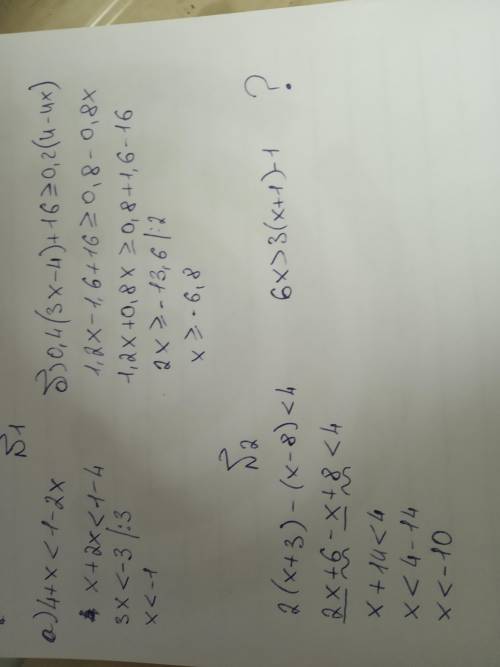 №1
а) 4+x<1-2x
x+2x<1-4
3x<-3 |:3
x<-1
б) 0,4(3x-4)+16≥0,2(4-4x)
1,2x-1,6+16≥0,8-0,8x
1,2x+0,8x≥0,8+1,6-16
2x≥-13,6 |:2
x≥-6,8
№2
2(x+3)-(x-8)<4
2x+6-x+8<4
x+14<4
x<4-14
x<-10
6x>3(x+1)-1 ?